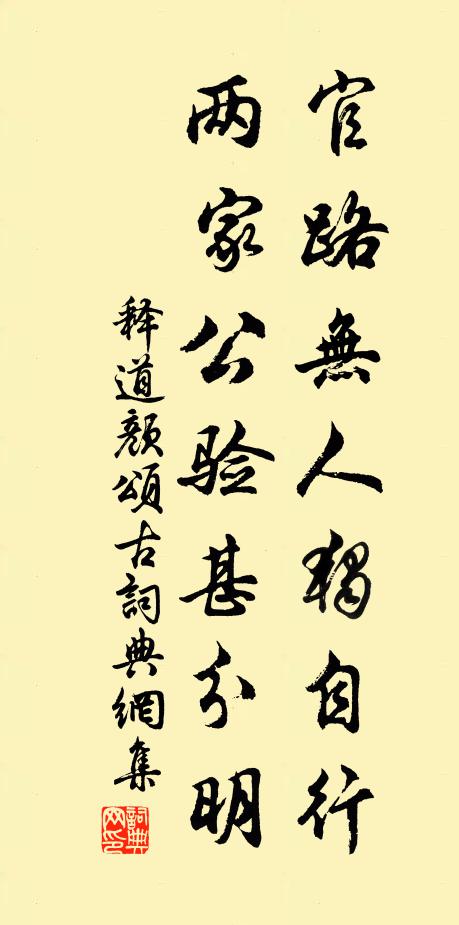 官路無人獨自行
两家公验甚分明
释道颜頌古詞典網集
詞典網印